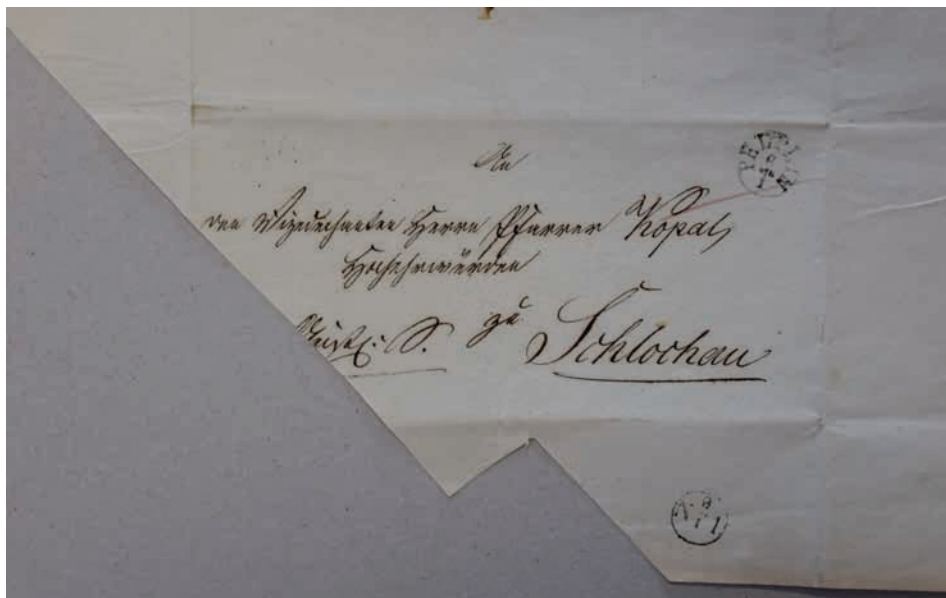 An
den Vizedechanten Herrn Pfarrer Kopat
Hochehrwürden
S. zu Schlochau